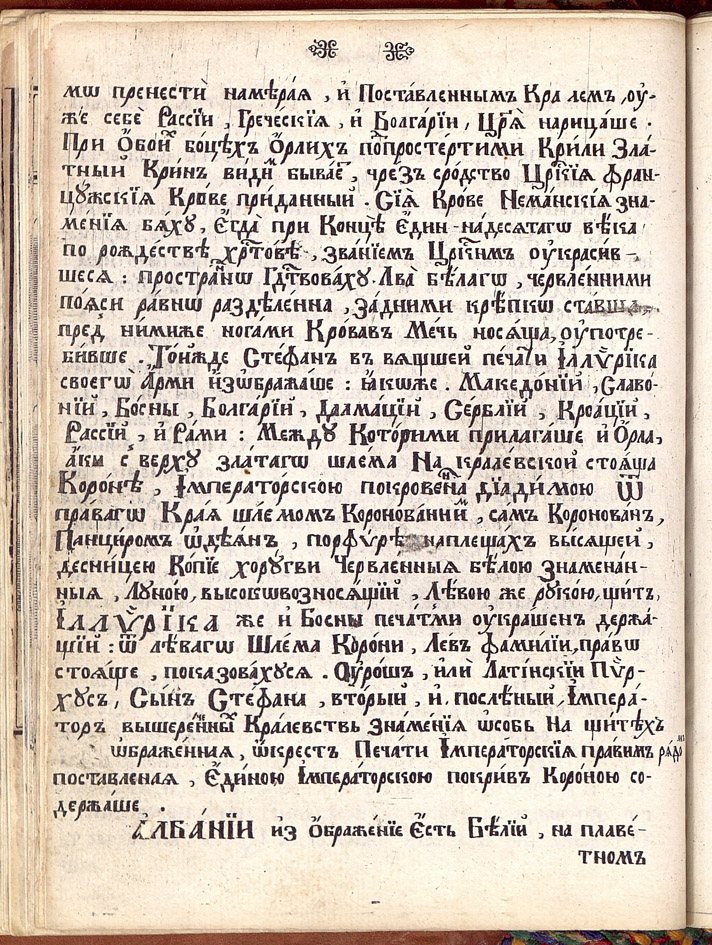 мѡ пренестѝ намѣра́я , и҆ Поста́вленнымъ Кра лемъ ,оу҆-
жѐ себѐ Рассїи , Гре́ческїѧ , и҆ Болга́рїи , Цр҃ѧ̀ нарица́ше .
При Ѻ҆бои҆̾ бо́цѣхъ Ѻ҆́рлихъ по̾просте́ртими Крили Зла́-
тный Кри́нъ ви́ди́м̾ быва́е̾ , чре́зъ сро́дство Цр҃кїѧ фран-
цꙋ́жскїѧ Кро́ве при́данный . Сїѧ̀ Крове Нема́нскїѧ зна-
ме́нїѧ бѧ́хꙋ , Є҆гда̀ при Концѣ̀ Є҆ди́н-на́десѧтагѡ вѣ́ка
по рождествѣ̀ хрⷭ҇то́вѣ , зва́нїемъ Црⷭ҇кимъ оу҆кра́сив-
шесѧ : простра́ннѡ Гдⷭ҇твова́хꙋ. Лва̀ бѣ́лагѡ , червле́нними
по́ѧси ра́внѡ раздѣ́ленна , за́дними крѣ́пкѡ ста́вша,
пред̾ ни́миже нога́ми Крова́въ Ме́чь носѧ́ща, оу҆потре-
би́вше . То́и҆жде Стефа́нъ въ вѧ́щшей печа́ти І҆ллѷ́рїка
своегѡ̀ А҆рми и҆з̾ѡбража́ше : ꙗ҆́коже . Македо́нїй , Славо-
нїй , Бо́сны , Болга́рїй , Далма́цїй , Се́рблїй , Кроа́цїй ,
Рассїй , и҆ Ра́ми : Междꙋ̀ Кото́рими прилага́ше и҆ Ѻ҆рла̀,
а҆́ки с̾ верхꙋ̀ злата́гѡ шле́ма На кра́ле́вской стоѧ́ща
Коро́нѣ , І҆мпера́торскою покрове́нна дїади́мою Ѿ
пра́вагѡ Края̀ шле́момъ Коронова́нний , са́мъ Короно́ванъ,
Па́нциромъ ѡ҆дѣ́ѧнъ , порфѵ́рѣ наплеща́хъ висѧ́щей ,
десни́цею Ко́пїе хорꙋ́гви Червле́нныѧ бѣ́лою Знамена́н-
ныѧ , Лꙋно́ю, высо́коѡвозносѧ́щїй , Лѣ́вою же рꙋко́ю, щи́тъ,
І҆ЛЛѶ́РЇКА же и҆ Бо́сны печа́тми оу҆кра́шенъ держа́-
щїй : ѿ лѣ́вагѡ Шле́ма Коро́ни , Ле́въ фами́лїи ,пра́вѡ
стоѧ́ще , показова́хꙋсѧ . Оу҆ро́шъ , и҆лѝ Лати́нскїи Пѵ́р-
хꙋсъ , Сы́нъ Стефа́на , вторы́й , и҆ послѣ́ный І҆мпера́-
торъ вышере́нны̾ Кра́левствъ знаме́нїѧ ѡсо́бь На щитѣ́хъ
ѡ҆браже́нная , ѡ҆́крестъ Печа́ти І҆мпера́торскїѧ пра́вимъ рѧ́домъ
поста́вленая , Є҆ди́ною І҆мпера́торскою покри́въ Коро́ною со-
держа́ше .
А҆ЛБА́НЇИ из Ѻ҆браже́нїе Є҆́сть Бѣ́лїй , на плаве́-
тномъ